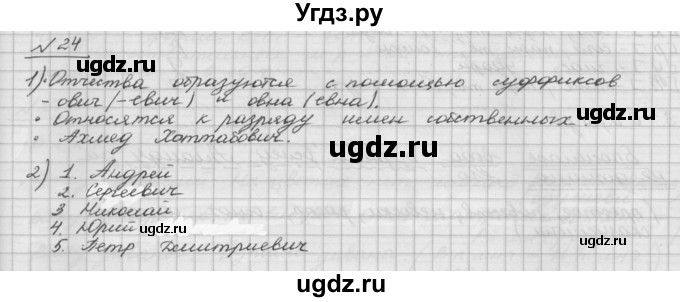 Угдз.ру
№24
1)• Отчества образуются с помощью суффиксов
-ович(-евич) и овна(евна).
• Относятся к разряду имен собственных.
• Ахмед Хоттабович.
2) 1. Андрей
2. Сергеевич
3 Николай
4. Юрий
5. Петр Дмитриевич
ugdz.ru ugdz.ru ugdz.ru
ugdz.ru
ugdz.ru ugdz.ru ugdz.ru